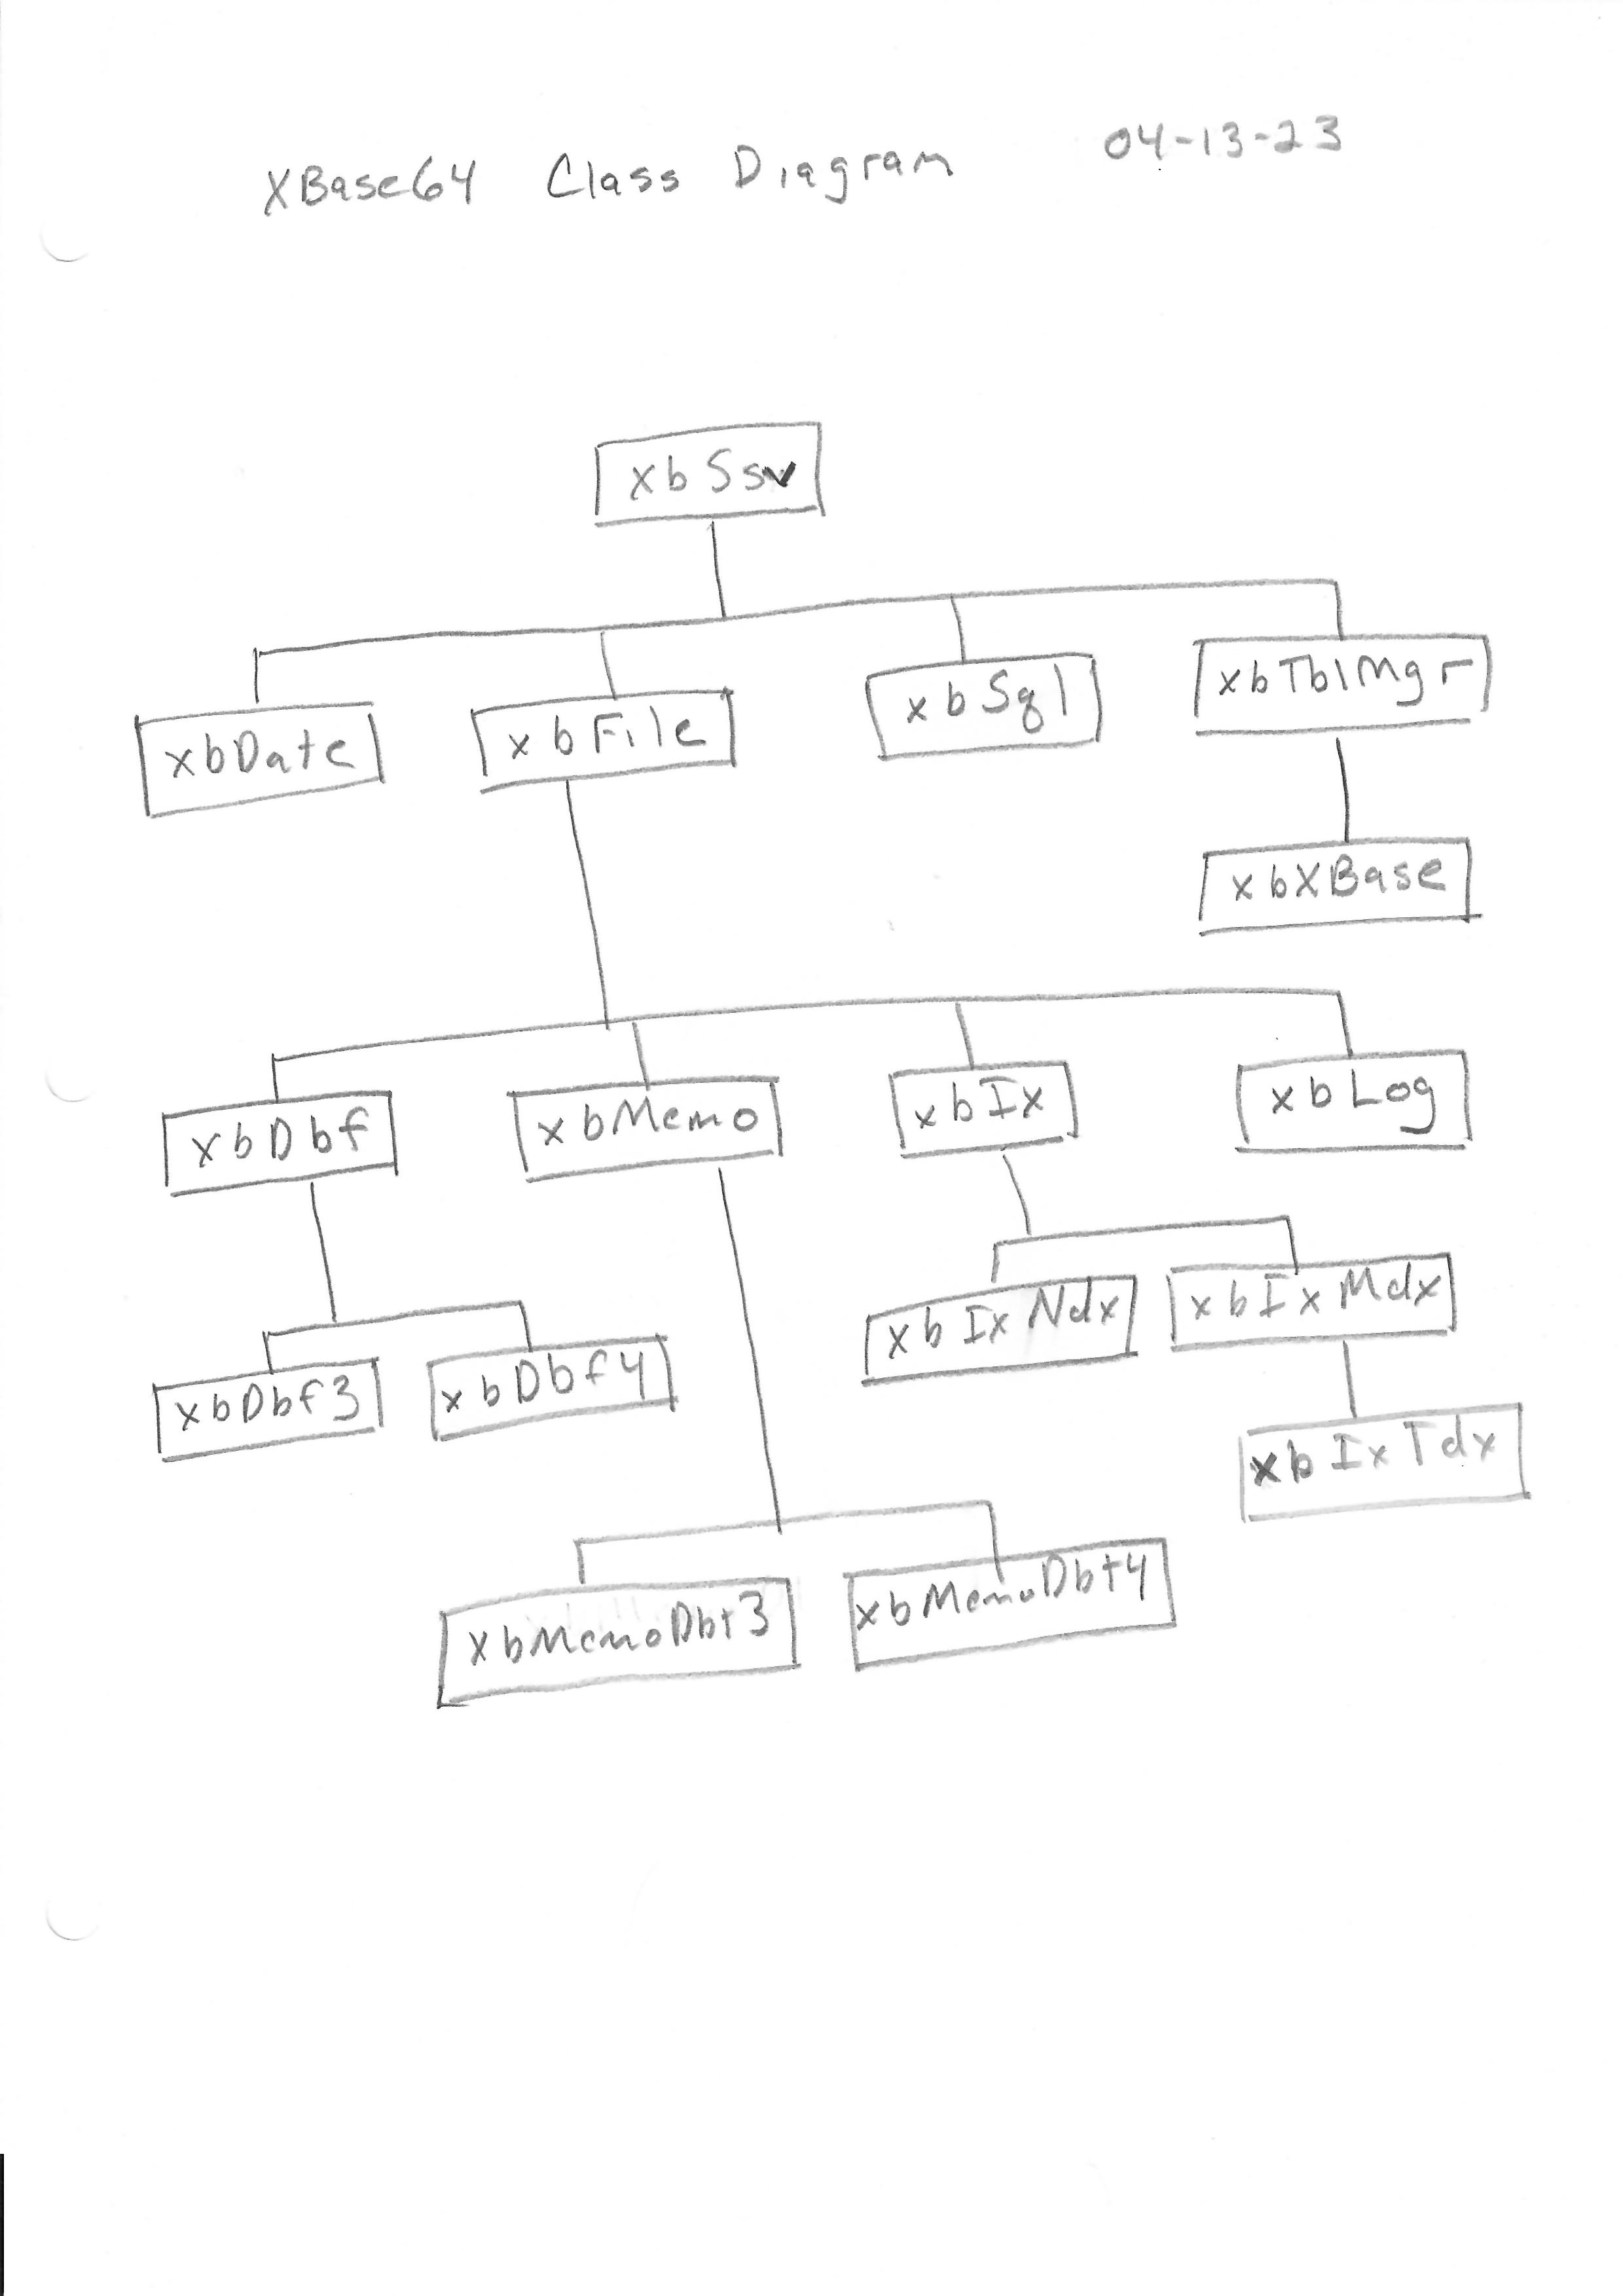 XBase64 Class Diagram 04-13-23
xbSsv
xbDate xbFile xbSql xbTblMgr
xbXBase
xbDbf xbMemo xbIx xbLog
xbIxNdx xbIxMdx
xbDbf3 xbDbf4
xbIxTdx
xbMemoDbt3 xbMemoDbt4